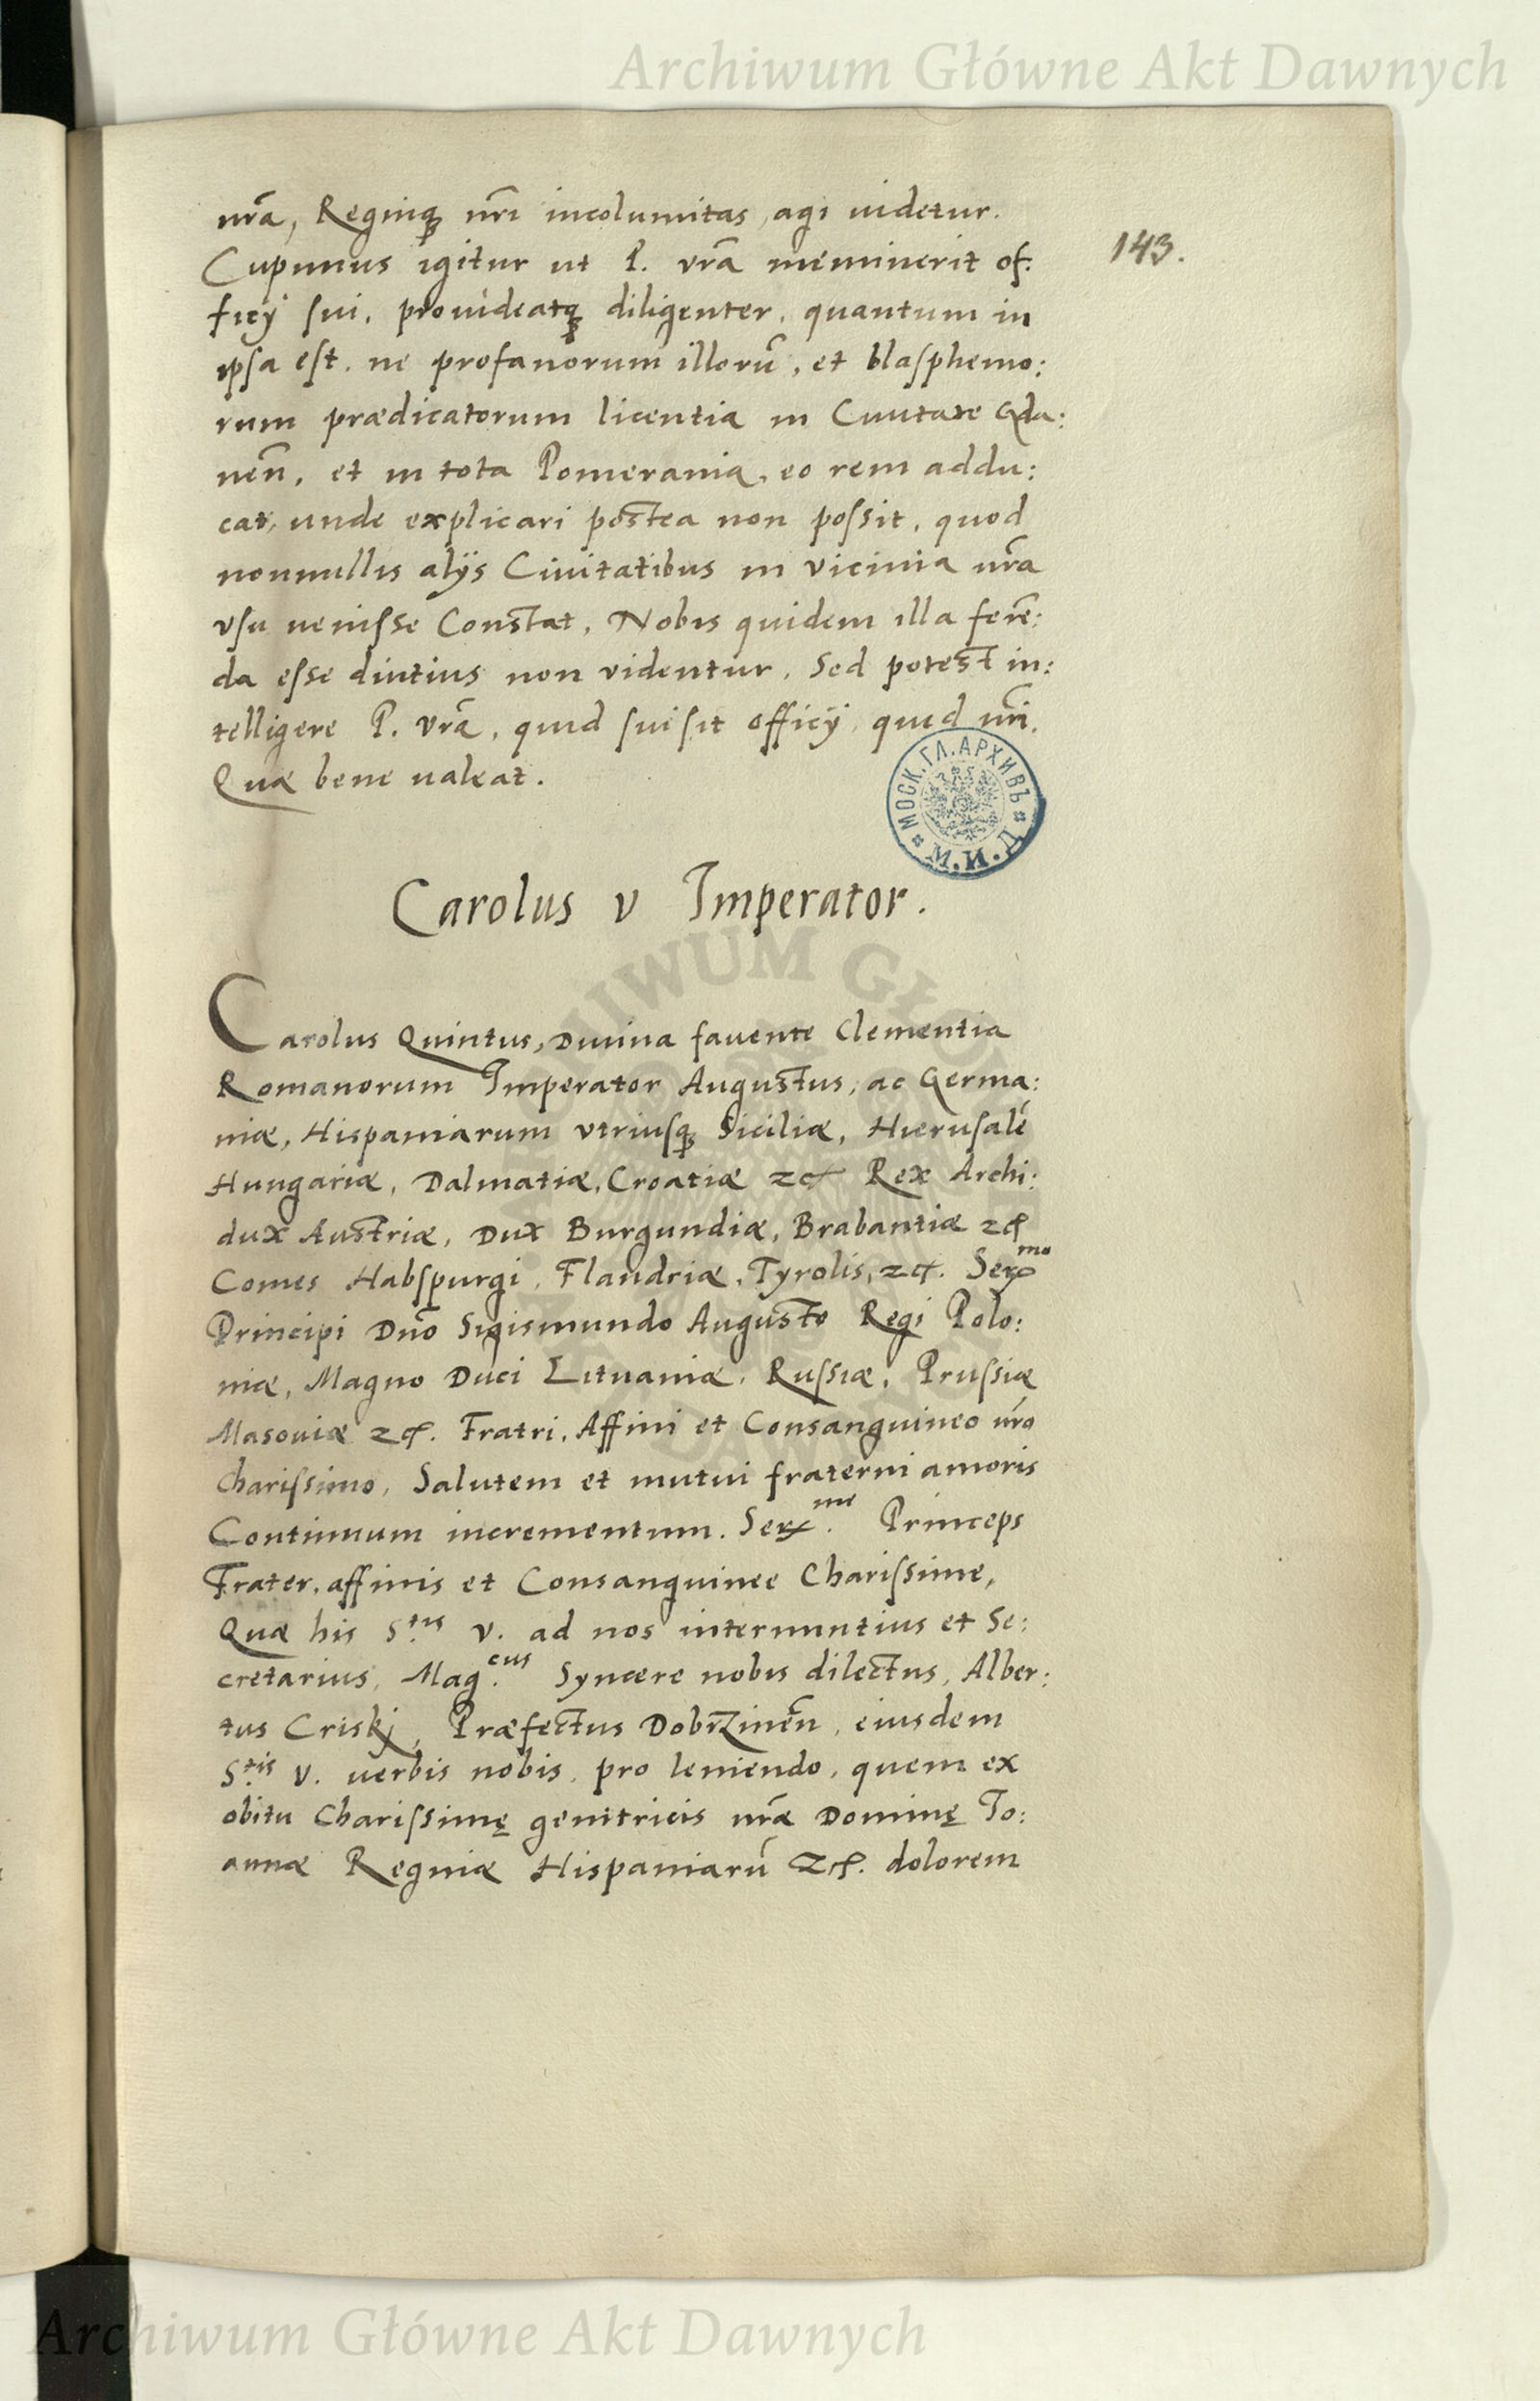 Archiwum Główne Akt Dawnych
nrã, Regniqꝫ nrĩ incolumitas, agi uidetur.
143.
Cupimus igitur ut P. vrã meminerit of:
ficÿ sui, prouideatqꝫ diligenter, quantum in
ipsa est, ne profanorum illorũ, et blasphemo:
rum prædicatorum licentia in Ciuitate Gda:
neñ, et in tota Pomerania, eo rem addu:
cat, unde explicari postea non possit, quod
nonnullis alÿs Ciuitatibus in vicinia nrã
vsu uenisse Constat, Nobis quidem illa ferẽ:
da esse diutius non videntur, Sed potest in:
telligere P. vrã, quid sui sit officÿ, quid nrĩ.
Quæ bene ualeat.
МОСК. ГЛ. АРХИВЪ М.И.Д.
Carolus V Imperator.
Carolus Quintus, Diuina fauente Clementia
Romanorum Imperator Augustus, ac Germa:
niæ, Hispaniarum vtriusqꝫ Siciliæ, Hierusalẽ
Hungariæ, Dalmatiæ, Croatiæ zc̃ Rex Archi:
dux Austriæ, Dux Burgundiæ, Brabantiæ zc̃
Comes Habspurgi, Flandriæ, Tyrolis, zc̃. Serᵐᵒ
Principi Dnõ Sigismundo Augusto Regi Polo:
niæ, Magno Duci Lituaniæ, Russiæ, Prussiæ
Masouiæ zc̃. Fratri, Affini et Consanguineo nrõ
Charissimo, Salutem et mutui fraterni amoris
Continuum incrementum. Serᵐᵉ. Princeps
Frater, affinis et Consanguinee Charissime,
Quæ his S.ᵗⁱˢ V. ad nos internuntius et Se:
cretarius, Mag.ᶜᵘˢ Syncere nobis dilectus, Alber:
tus Criskj, Præfectus Dobrzineñ, eiusdem
S.ᵗⁱˢ V. uerbis nobis, pro leniendo, quem ex
obitu Charissimę genitricis nrã̃e Dominę Io:
annæ Reginæ Hispaniarũ zc̃. dolorem
Archiwum Główne Akt Dawnych